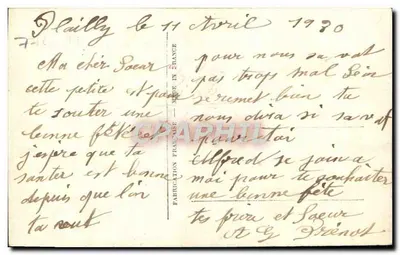 Plailly le 11 Avril 1930
Ma cher Soeur
cette petite pour
te souter une
bonne fête
j'espere que ta
santer est bonne
depuis que l'on
ta
FABRICATION FRANÇAISE - MADE IN FRANCE
pour nous sa vat
pas trops mal Léon
se remet bien tu
nous dira si sa vat
pour toi
Alfred se join a
moi pour te souhaiter
une bonne fête
tes frere et Soeur
A G